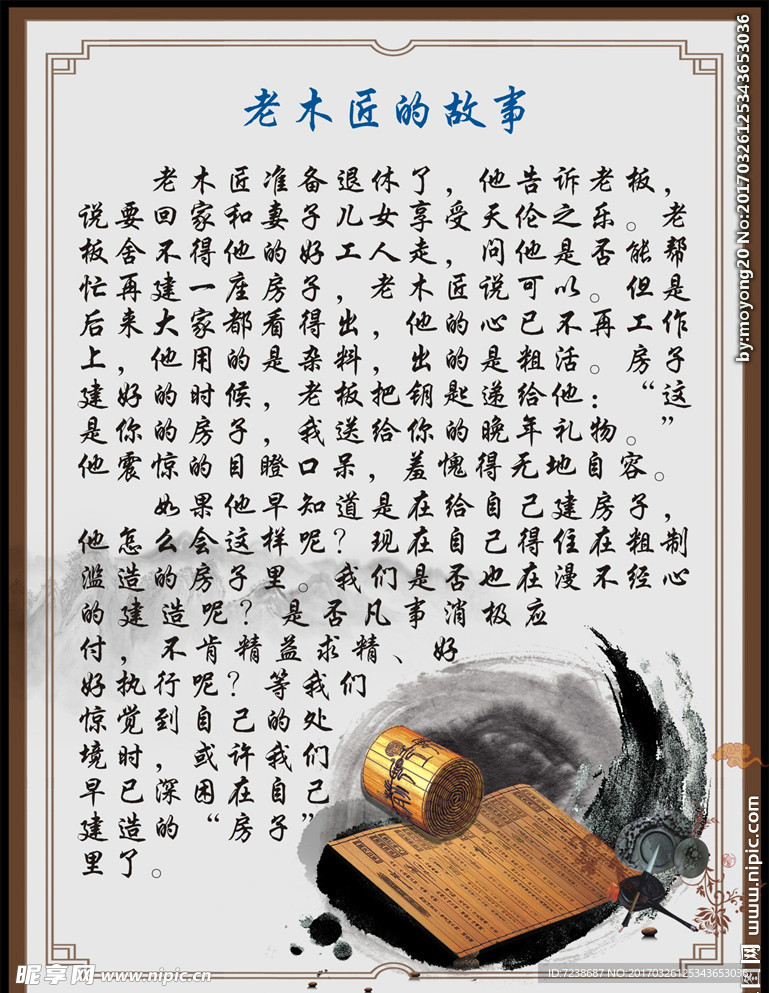 老木匠的故事
老木匠准备退休了，他告诉老板，
说要回家和妻子儿女享受天伦之乐。老
板舍不得他的好工人走，问他是否能帮
忙再建一座房子，老木匠说可以。但是
后来大家都看得出，他的心已不再工作
上，他用的是杂料，出的是粗活。房子
建好的时候，老板把钥匙递给他：“这
是你的房子，我送给你的晚年礼物。”
他震惊的目瞪口呆，羞愧得无地自容。
如果他早知道是在给自己建房子，
他怎么会这样呢？现在自己得住在粗制
滥造的房子里。我们是否也在漫不经心
的建造呢？是否凡事消极应
付，不肯精益求精、好
好执行呢？等我们
惊觉到自己的处
境时，或许我们
早已深困在自己
建造的“房子”
里了。
by:moyong20 No:20170326125343653036
www.nipic.com
昵享网 www.nipic.cn
ID:7238687 NO:20170326125343653036
昵图网